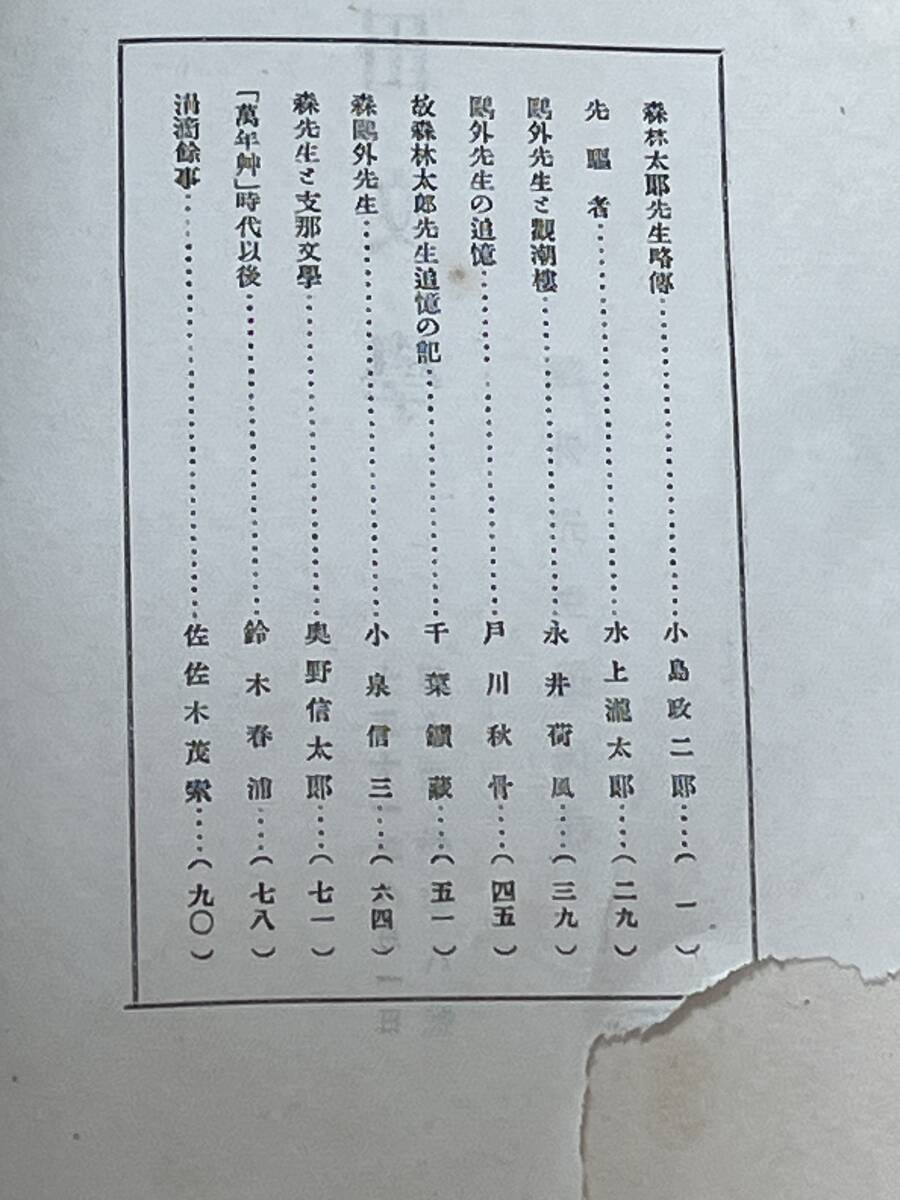 森林太郎先生略傳…………小島政二郎……(一)
先驅者…………水上瀧太郎……(二九)
鷗外先生と觀潮樓…………永井荷風……(三九)
鷗外先生の追憶…………戸川秋骨……(四五)
故森林太郎先生追憶の記…………千葉鑛藏……(五一)
森鷗外先生…………小泉信三……(六四)
森先生と支那文學…………奥野信太郎……(七一)
「萬年艸」時代以後…………鈴木春浦……(七八)
涓滴餘事…………佐佐木茂索……(九〇)